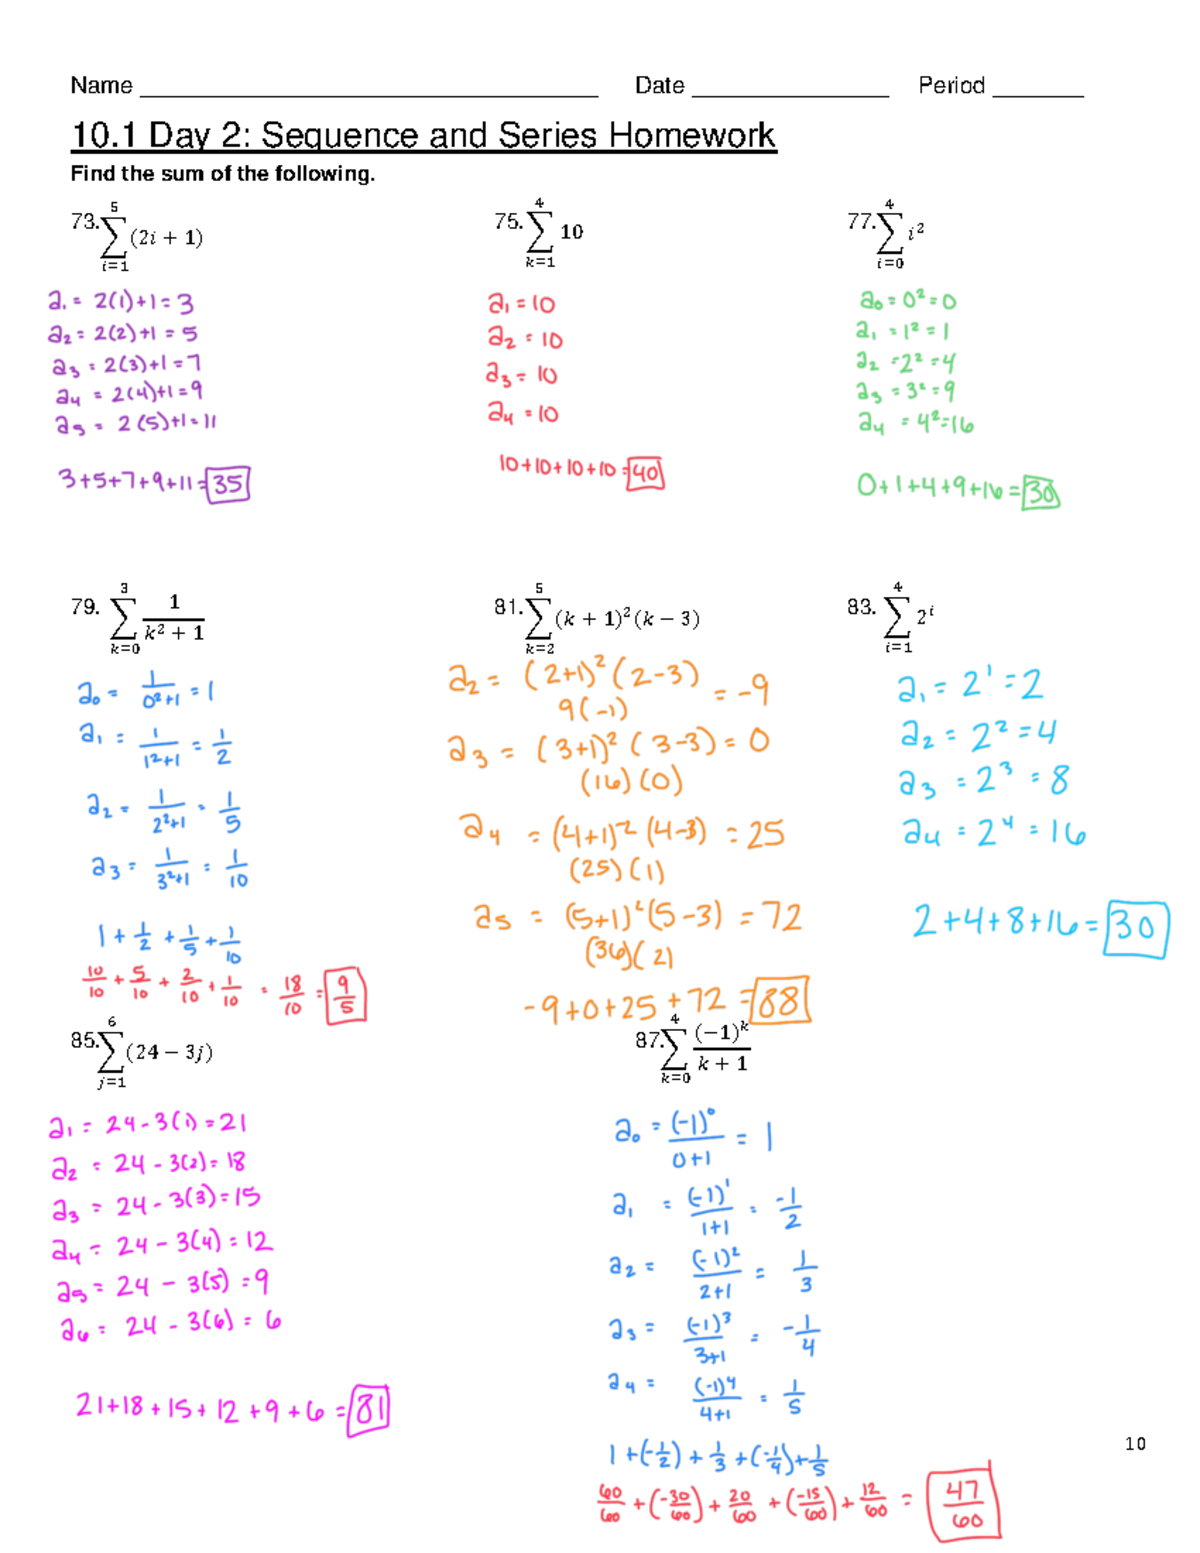 Name ________________ Date ________________ Period ________
10.1 Day 2: Sequence and Series Homework
Find the sum of the following.
73. 5 ∑ i=1 (2i + 1)
a₁ = 2(1)+1 = 3
a₂ = 2(2)+1 = 5
a₃ = 2(3)+1 = 7
a₄ = 2(4)+1 = 9
a₅ = 2(5)+1 = 11
3+5+7+9+11 = 35
75. 4 ∑ k=1 10
a₁ = 10
a₂ = 10
a₃ = 10
a₄ = 10
10+10+10+10 = 40
77. 4 ∑ i=0 i²
a₀ = 0² = 0
a₁ = 1² = 1
a₂ = 2² = 4
a₃ = 3² = 9
a₄ = 4² = 16
0+1+4+9+16 = 30
79. 3 ∑ k=0 1/(k² + 1)
a₀ = 1/(0²+1) = 1
a₁ = 1/(1²+1) = 1/2
a₂ = 1/(2²+1) = 1/5
a₃ = 1/(3²+1) = 1/10
1 + 1/2 + 1/5 + 1/10
10/10 + 5/10 + 2/10 + 1/10 = 18/10 = 9/5
81. 5 ∑ k=2 (k + 1)²(k − 3)
a₂ = (2+1)²(2-3) = -9
9(-1)
a₃ = (3+1)²(3-3) = 0
(16)(0)
a₄ = (4+1)²(4-3) = 25
(25)(1)
a₅ = (5+1)²(5-3) = 72
(36)(2)
-9+0+25+72 = 88
83. 4 ∑ i=1 2ⁱ
a₁ = 2¹ = 2
a₂ = 2² = 4
a₃ = 2³ = 8
a₄ = 2⁴ = 16
2+4+8+16 = 30
85. 6 ∑ j=1 (24 − 3j)
a₁ = 24-3(1) = 21
a₂ = 24-3(2) = 18
a₃ = 24-3(3) = 15
a₄ = 24-3(4) = 12
a₅ = 24-3(5) = 9
a₆ = 24-3(6) = 6
21+18+15+12+9+6 = 81
87. 4 ∑ k=0 (−1)ᵏ/(k + 1)
a₀ = (-1)⁰/(0+1) = 1
a₁ = (-1)¹/(1+1) = -1/2
a₂ = (-1)²/(2+1) = 1/3
a₃ = (-1)³/(3+1) = -1/4
a₄ = (-1)⁴/(4+1) = 1/5
1+(-1/2)+1/3+(-1/4)+1/5
60/60+(-30/60)+20/60+(-15/60)+12/60 = 47/60
10